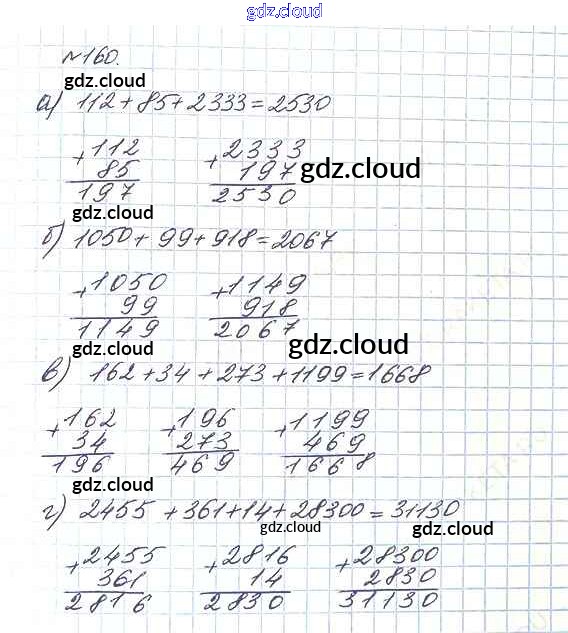 gdz.cloud
№160.
gdz.cloud
а) 112 + 85 + 2333 = 2530
+112 +2333
85 197 gdz.cloud
197 2530
gdz.cloud
б) 1050 + 99 + 918 = 2067
+1050 +1149
99 918
1149 2067
gdz.cloud gdz.cloud
в) 162 + 34 + 273 + 1199 = 1668
+162 +196 +1199
34 273 469
196 469 1668
gdz.cloud
г) 2455 + 361 + 14 + 28300 = 31130
gdz.cloud gdz.cloud
+2455 +2816 +28300
361 14 2830
2816 2830 31130